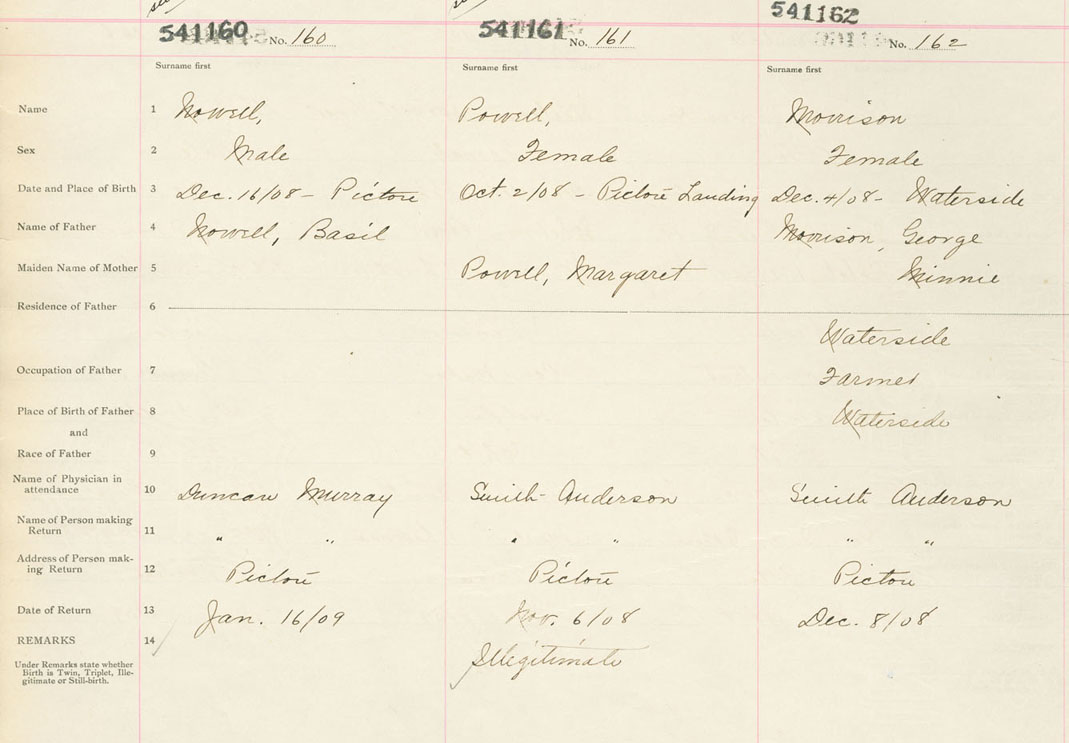 541160 No. 160
541161 No. 161
541162 No. 162
Surname first Surname first Surname first
Name 1 Nowell, Powell, Morrison
Sex 2 Male Female Female
Date and Place of Birth 3 Dec. 16/08 - Pictou Oct. 2/08 - Pictou Landing Dec. 4/08 - Waterside
Name of Father 4 Nowell, Basil Morrison, George
Maiden Name of Mother 5 Powell, Margaret Minnie
Residence of Father 6
Waterside
Occupation of Father 7 Farmer
Place of Birth of Father 8 Waterside
and
Race of Father 9
Name of Physician in
attendance 10 Duncan Murray Smith Anderson Smith Anderson
Name of Person making
Return 11 " " " " " "
Address of Person mak-
ing Return 12 Pictou Pictou Pictou
Date of Return 13 Jan. 16/09 Nov. 6/08 Dec. 8/08
REMARKS 14
Illegitimate
Under Remarks state whether
Birth is Twin, Triplet, Ille-
gitimate or Still-birth.